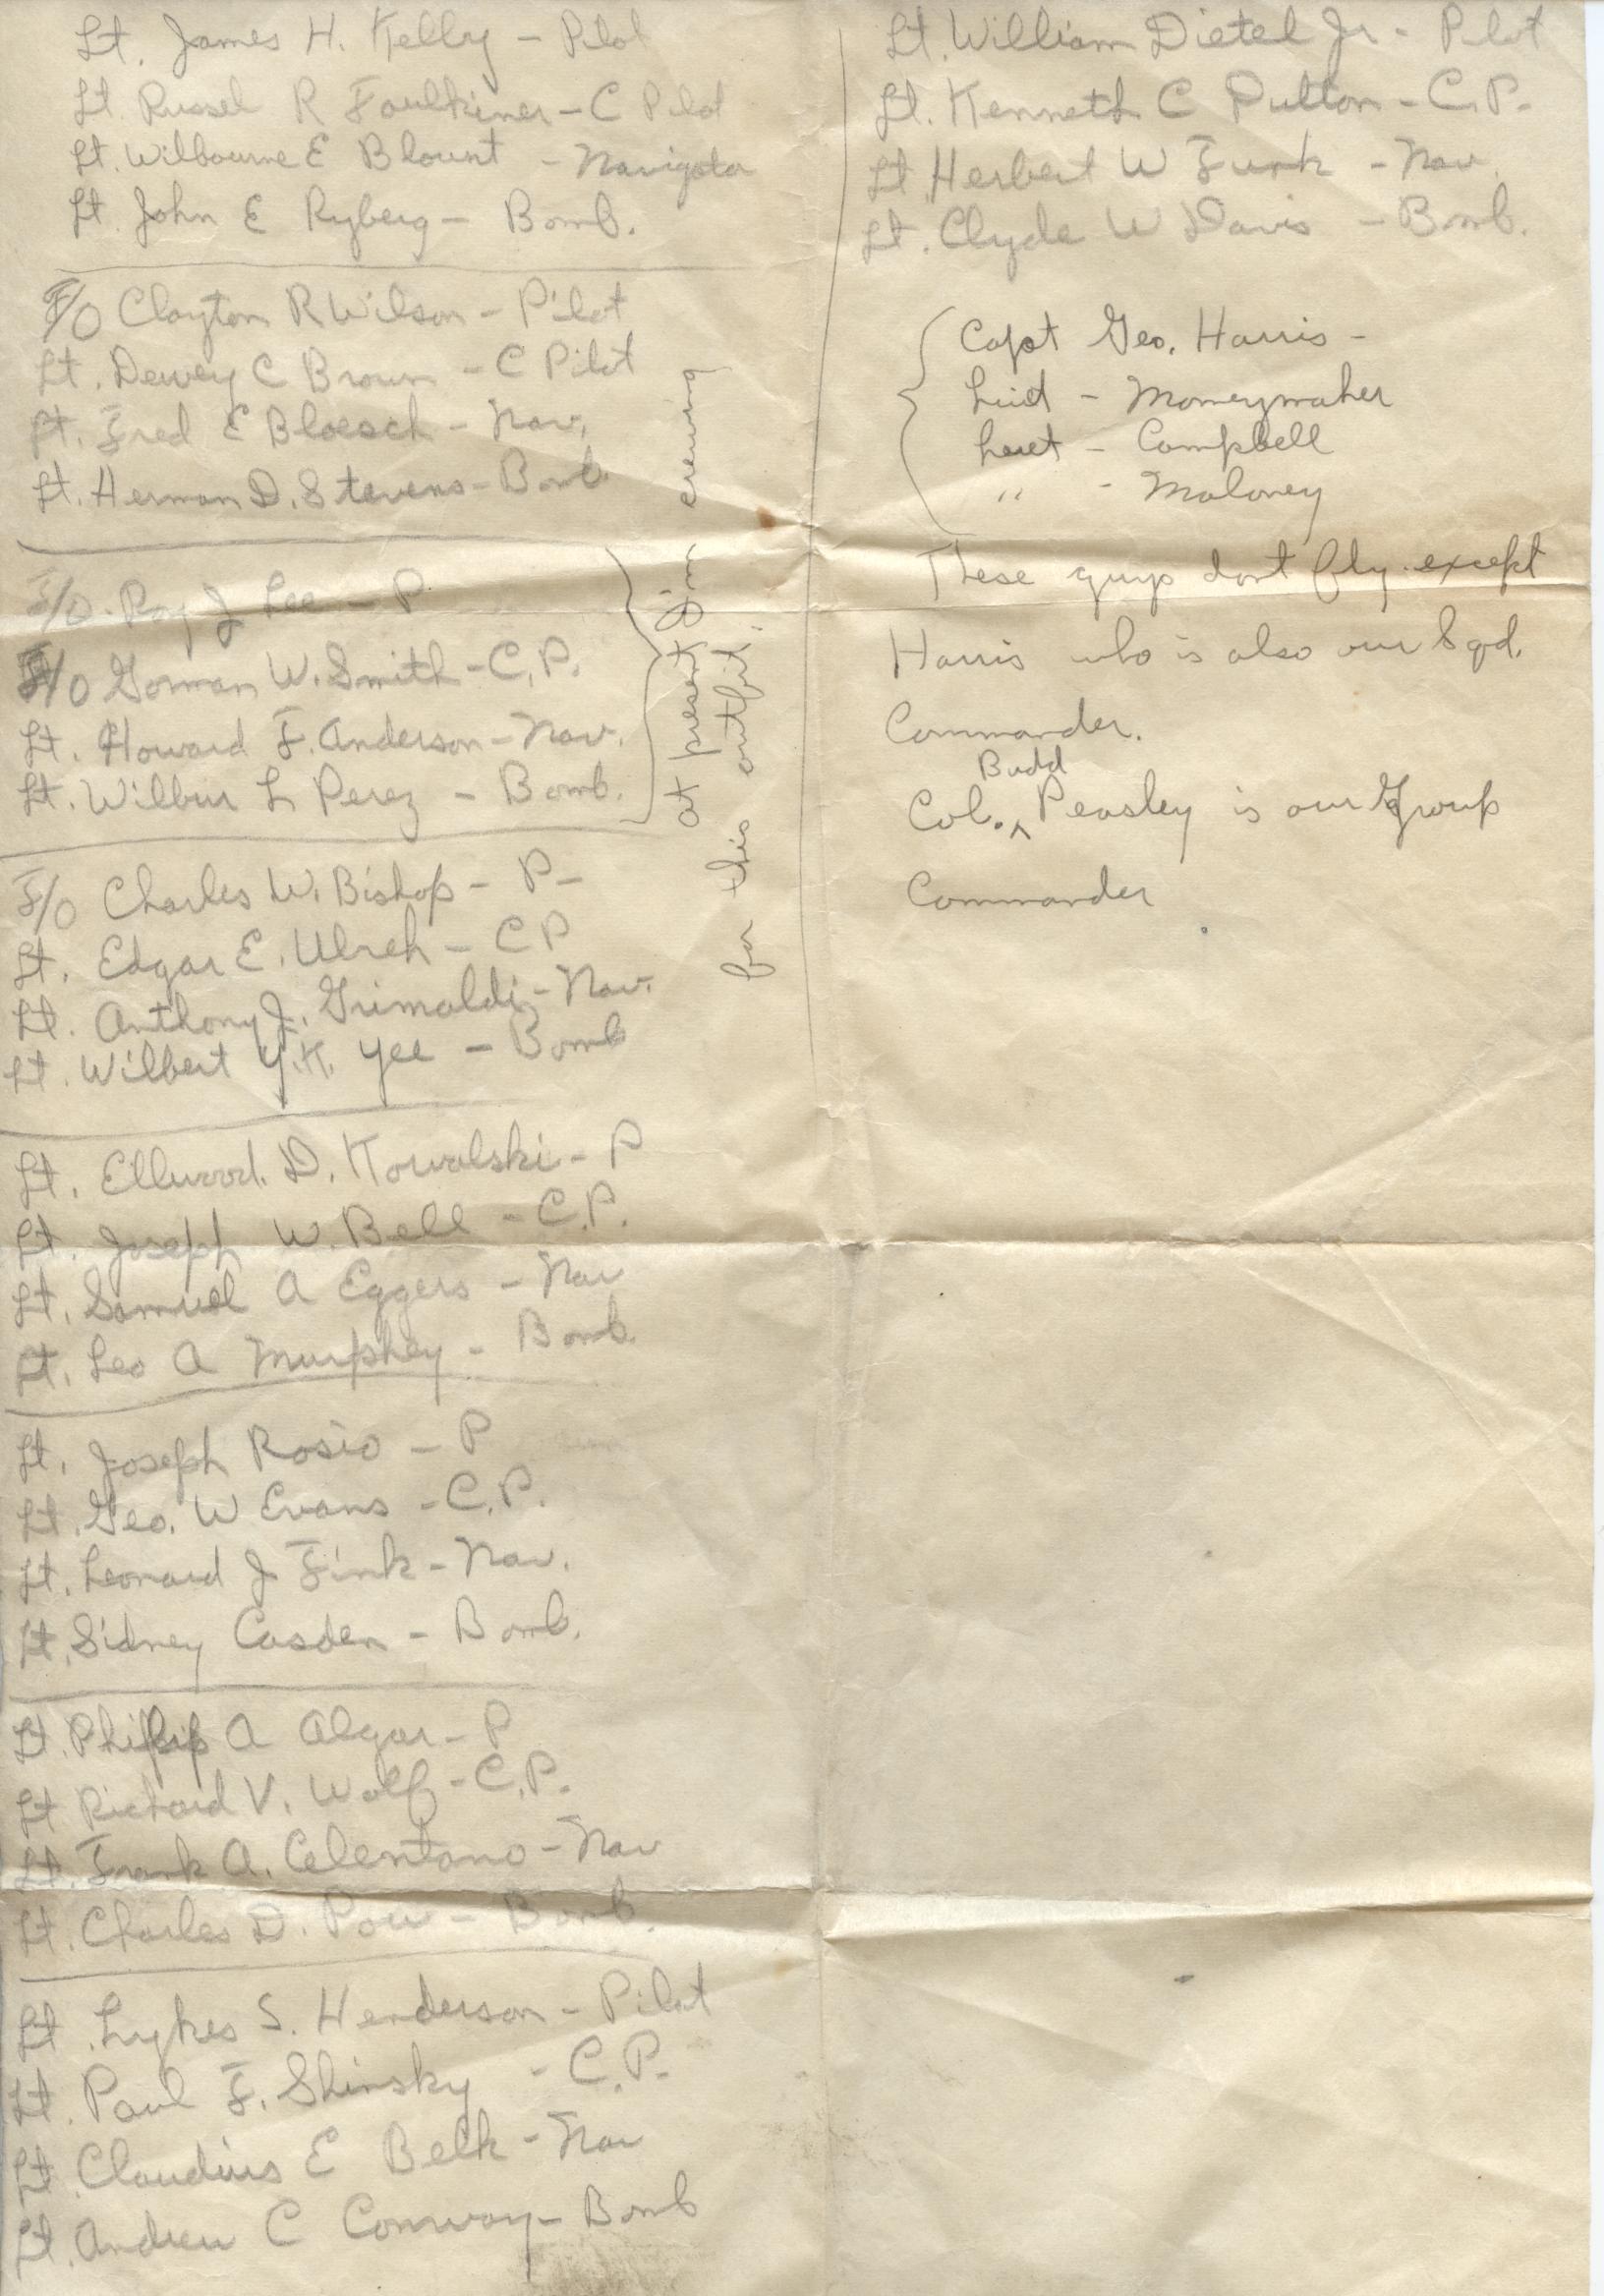 Lt. James H. Kelly - Pilot
Lt. Russel R Faulkiner - C Pilot
Lt. Wilbourne E Blount - Navigator
Lt. John E Ryberg - Bomb.
F/O Clayton R Wilson - Pilot
Lt. Dewey C Brown - C Pilot
Lt. Fred E Bloesch - Nav.
Lt. Herman D. Stevens - Bomb
F/O. Roy J Lee - P
F/O Gorman W. Smith - C.P.
Lt. Howard F. Anderson - Nav.
Lt. Wilbur L Perez - Bomb.
at present I'm crewing
for this outfit.
F/O Charles W. Bishop - P -
Lt. Edgar E. Ulreh - C P
Lt. Anthony J. Grimaldi - Nav.
Lt. Wilbert Y.K. Yee - Bomb
Lt. Ellwood. D. Kowalski - P
Lt. Joseph W. Bell - C.P.
Lt. Samuel A Eggers - Nav
Lt. Leo A Murphey - Bomb.
Lt. Joseph Rosio - P
Lt. Geo. W Evans - C.P.
Lt. Leonard J Fink - Nav.
Lt. Sidney Casden - Bomb.
Lt. Phillip A Algar - P
Lt Richard V. Wolf - C.P.
Lt. Frank A. Celentano - Nav
Lt. Charles D. Pow - Bomb.
Lt. Lykes S. Henderson - Pilot
Lt. Paul F. Shinsky - C.P.
Lt. Claudius E Belk - Nav
Lt. Andrew C Conway - Bomb
Lt. William Dietel Jr - Pilot
Lt. Kenneth C Dutton - C.P.
Lt. Herbert W Funk - Nav.
Lt. Clyde W Davis - Bomb.
Capt Geo. Harris -
Liut - Moneymaker
Leut - Campbell
" - Maloney
These guys dont fly except
Harris who is also our Sqd.
Commander.
Budd
Col. ^ Peasley is our Group
Commander